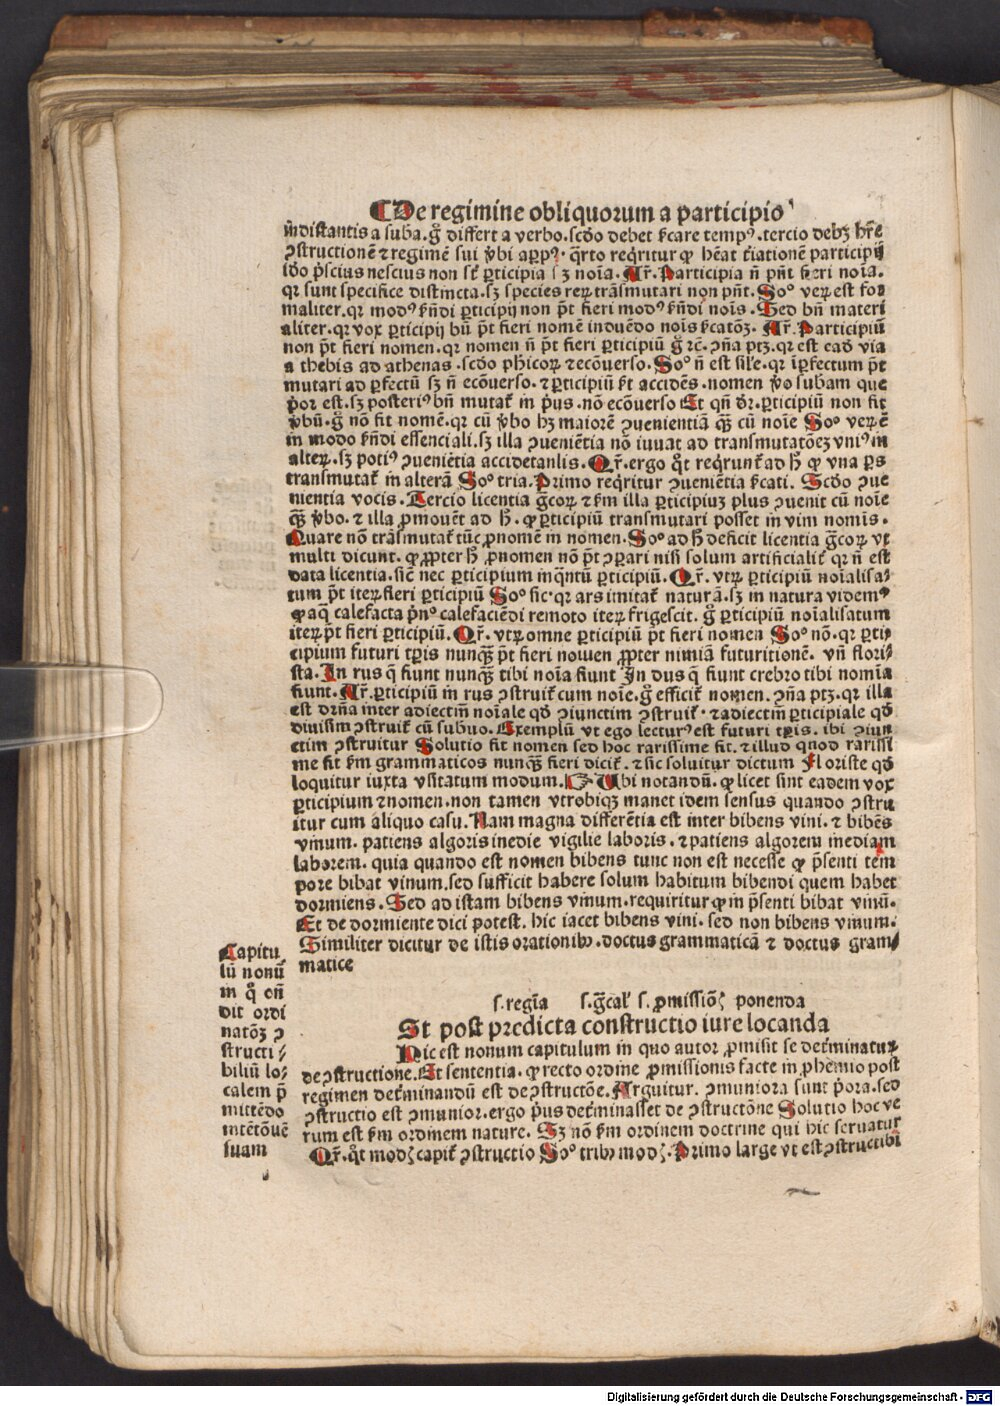 De regimine obliquorum a participio
mdistantis a suba.g̃ differt a verbo.scd̃o debet s̃care temp⁹.tercio debꝫ hr̃e
ꝯstructionẽ ⁊ regimẽ sui ṽbi aꝑp⁹. qr̃to reqr̃itur ꝙ hẽat t̃iationẽ participij
Id̃o p̃scius nescius non st̃ ꝑticipia sꝫ noĩa. Ar̃. Participia ñ pñt fieri noĩa.
qꝛ sunt specifice distincta.sꝫ species reꝝ trãsmutari non pñt. Soᵒ veꝝ est for
maliter.qꝛ mod⁹ s̃ñdi ꝑticipij non p̃t fieri mod⁹ s̃ñdi noĩs. Sed bñ materi
aliter.qꝛ vox ꝑticipij bñ p̃t fieri nomẽ induẽdo noĩs s̃catõꝫ. Ar̃. Participiũ
non p̃t fieri nomen.qꝛ nomen ñ p̃t fieri ꝑticipiũ g̃ rẽ. ꝯñа ptꝫ.qꝛ est ead̃ via
a thebis ad athenas .scd̃o ph̃icoꝝ ⁊ ecõuerso. Soᵒ ñ est sil̃e.qꝛ ĩꝑfectum p̃t
mutari ad ꝑfectũ sꝫ ñ ecõuerso. ⁊ ꝑticipiũ s̃t accidẽs .nomen ṽo subam que
p̃or est.sꝫ posteri⁹ bñ mutat̃ in p̃us .nõ ecõuerso Et qñ dr̃. ꝑticipiũ non fit
ṽbũ.g̃ nõ fit nomẽ.qꝛ cũ ṽbo hꝫ maiorẽ ꝯuenientiã qꝫ̃ cũ noĩe Soᵒ veꝝ ẽ
in modo s̃ñdi essenciali.sꝫ illa ꝯueniẽtia nõ iuuat ad transmutatõeꝫ vni⁹ in
alteꝝ.sꝫ poti⁹ ꝯueniẽtia accidetanlis. Qr̃.ergo q̃t reqr̃unt̃ ad h̃ ꝙ vna ꝑs
transmutat̃ in alterã Soᵒ tria. Primo reqr̃itur ꝯueniẽtia s̃cati. Scd̃o ꝯue
nientia vocis. Tercio licentia g̃coꝝ ⁊ s̃m illa ꝑticipiuꝫ plus ꝯuenit cũ noĩe
qꝫ̃ ṽbo. ⁊ illa ꝓmouẽt ad h̃. ꝙ ꝑticipiũ transmutari posset in vim nominis.
Quare nõ trãsmutat̃ tũc ꝓnomẽ in nomen. Soᵒ ad h̃ deficit licentia g̃coꝝ vt
multi dicunt. ꝙ ꝓpter h̃ ꝓnomen nõ p̃t ꝯꝑari nisi solum artificialit̃ qꝛ ñ est
data licentia.sic̃ nec ꝑticipium inq̃ntũ ꝑticipiũ. Qr̃. vtꝝ ꝑticipiũ noĩalisa⸗
tum p̃t iteꝝ fieri ꝑticipiũ Soᵒ sic.qꝛ ars imitat̃ naturã.sꝫ in natura videm⁹
ꝙ aq̃ calefacta p̃nᵒ calefaciẽdi remoto iteꝝ frigescit. g̃ ꝑticipiũ noĩalisatum
iteꝝ p̃t fieri ꝑticipiũ. Qr̃. vtꝝ omne ꝑticipiũ p̃t fieri nomen Soᵒ nõ.qꝛ ꝑti⸗
cipium futuri tꝑis nunqꝫ̃ p̃t fieri nowen ꝓpter nimiã futuritionẽ. vñ flori⸗
sta. In rus q̃ fiunt nunqꝫ̃ tibi noĩa fiunt In dus q̃ fiunt crebro tibi nomĩa
fiunt. Ar̃.ꝑticipiũ in rus ꝯstruit̃ cum noĩe.g̃ efficit̃ nomen. ꝯña ptꝫ.qꝛ illa
est dr̃ña inter adiectm̃ noĩale qd̃ ꝯiunctim ꝯstruit̃. ⁊ adiectm̃ ꝑticipiale qd̃
diuisim ꝯstruit̃ cũ subuo. Exemplũ vt ego lectur⁹ est futuri tꝑis. ibi ꝯiun
ctim ꝯstruitur Solutio fit nomen sed hoc rarissime fit. ⁊ illud quod rarissi
me fit s̃m grammaticos nunqꝫ̃ fieri dicit̃. ⁊ sic soluitur dictum Floriste qd̃
loquitur iuxta vsitatum modum. ☞ Ubi notandũ. ꝙ licet sint eadem vox
ꝑticipium ⁊ nomen.non tamen vtrobiqꝫ manet idem sensus quando ꝯstru
itur cum aliquo casu. Nam magna differẽtia est inter bibens vini. ⁊ bibẽs
vinum. patiens algoris inedie vigilie laboris. ⁊ patiens algorem inediam
laborem. quia quando est nomen bibens tunc non est necesse ꝙ p̃senti tem
pore bibat vinum.sed sufficit habere solum habitum bibendi quem habet
dormiens. Sed ad istam bibens vinum.requiritur ꝙ in p̃senti bibat vinũ.
Et de dormiente dici potest. hic iacet bibens vini. sed non bibens vinum.
Similiter dicitur de istis orationibꝰ.doctus grammaticã ⁊ doctus gram⸗
matice
Capitu
lũ nonũ
in q̃ oñ
dit ordi
natõꝫ ꝯ
structi⸗
biliũ lo⸗
calem p̃
mittẽdo
intẽtõuẽ
suam
s.regĩa s.g̃cal̃ s. ꝓmissiõꝭ ponenda
St post predicta constructio iure locanda
Hic est nonum capitulum in quo autor ꝓmisit se det̃minatur
de ꝯstructione. Et sententia. ꝙ recto ordine ꝓmissionis facte in ꝓhemio post
regimen det̃minandũ est de ꝯstructõe. Arguitur. ꝯmuniora sunt p̃ora.sed
ꝯstructio est ꝯmunior.ergo p̃us det̃minasset de ꝯstructõne Solutio hoc ve
rum est s̃m ordinem nature. Sꝫ nõ s̃m ordinem doctrine qui hic seruatur
Qr̃.q̃t modꝭ capit̃ ꝯstructio Soᵒ tribꝰ modꝭ. Primo large vt est ꝯstructibi
Digitalisierung gefördert durch die Deutsche Forschungsgemeinschaft - DFG